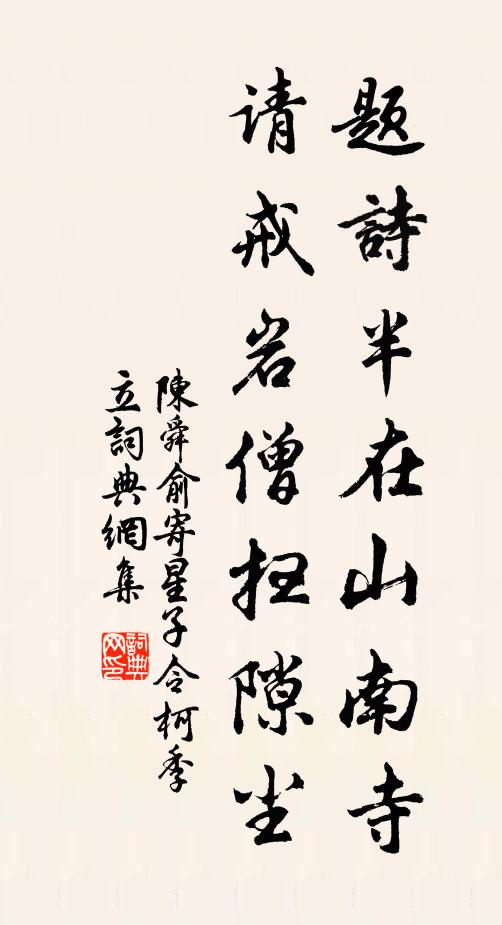 题詩半在山南寺
请戒岩僧扫隙尘
陳舜俞寄星子令柯季
立詞典網集
詞典
网印